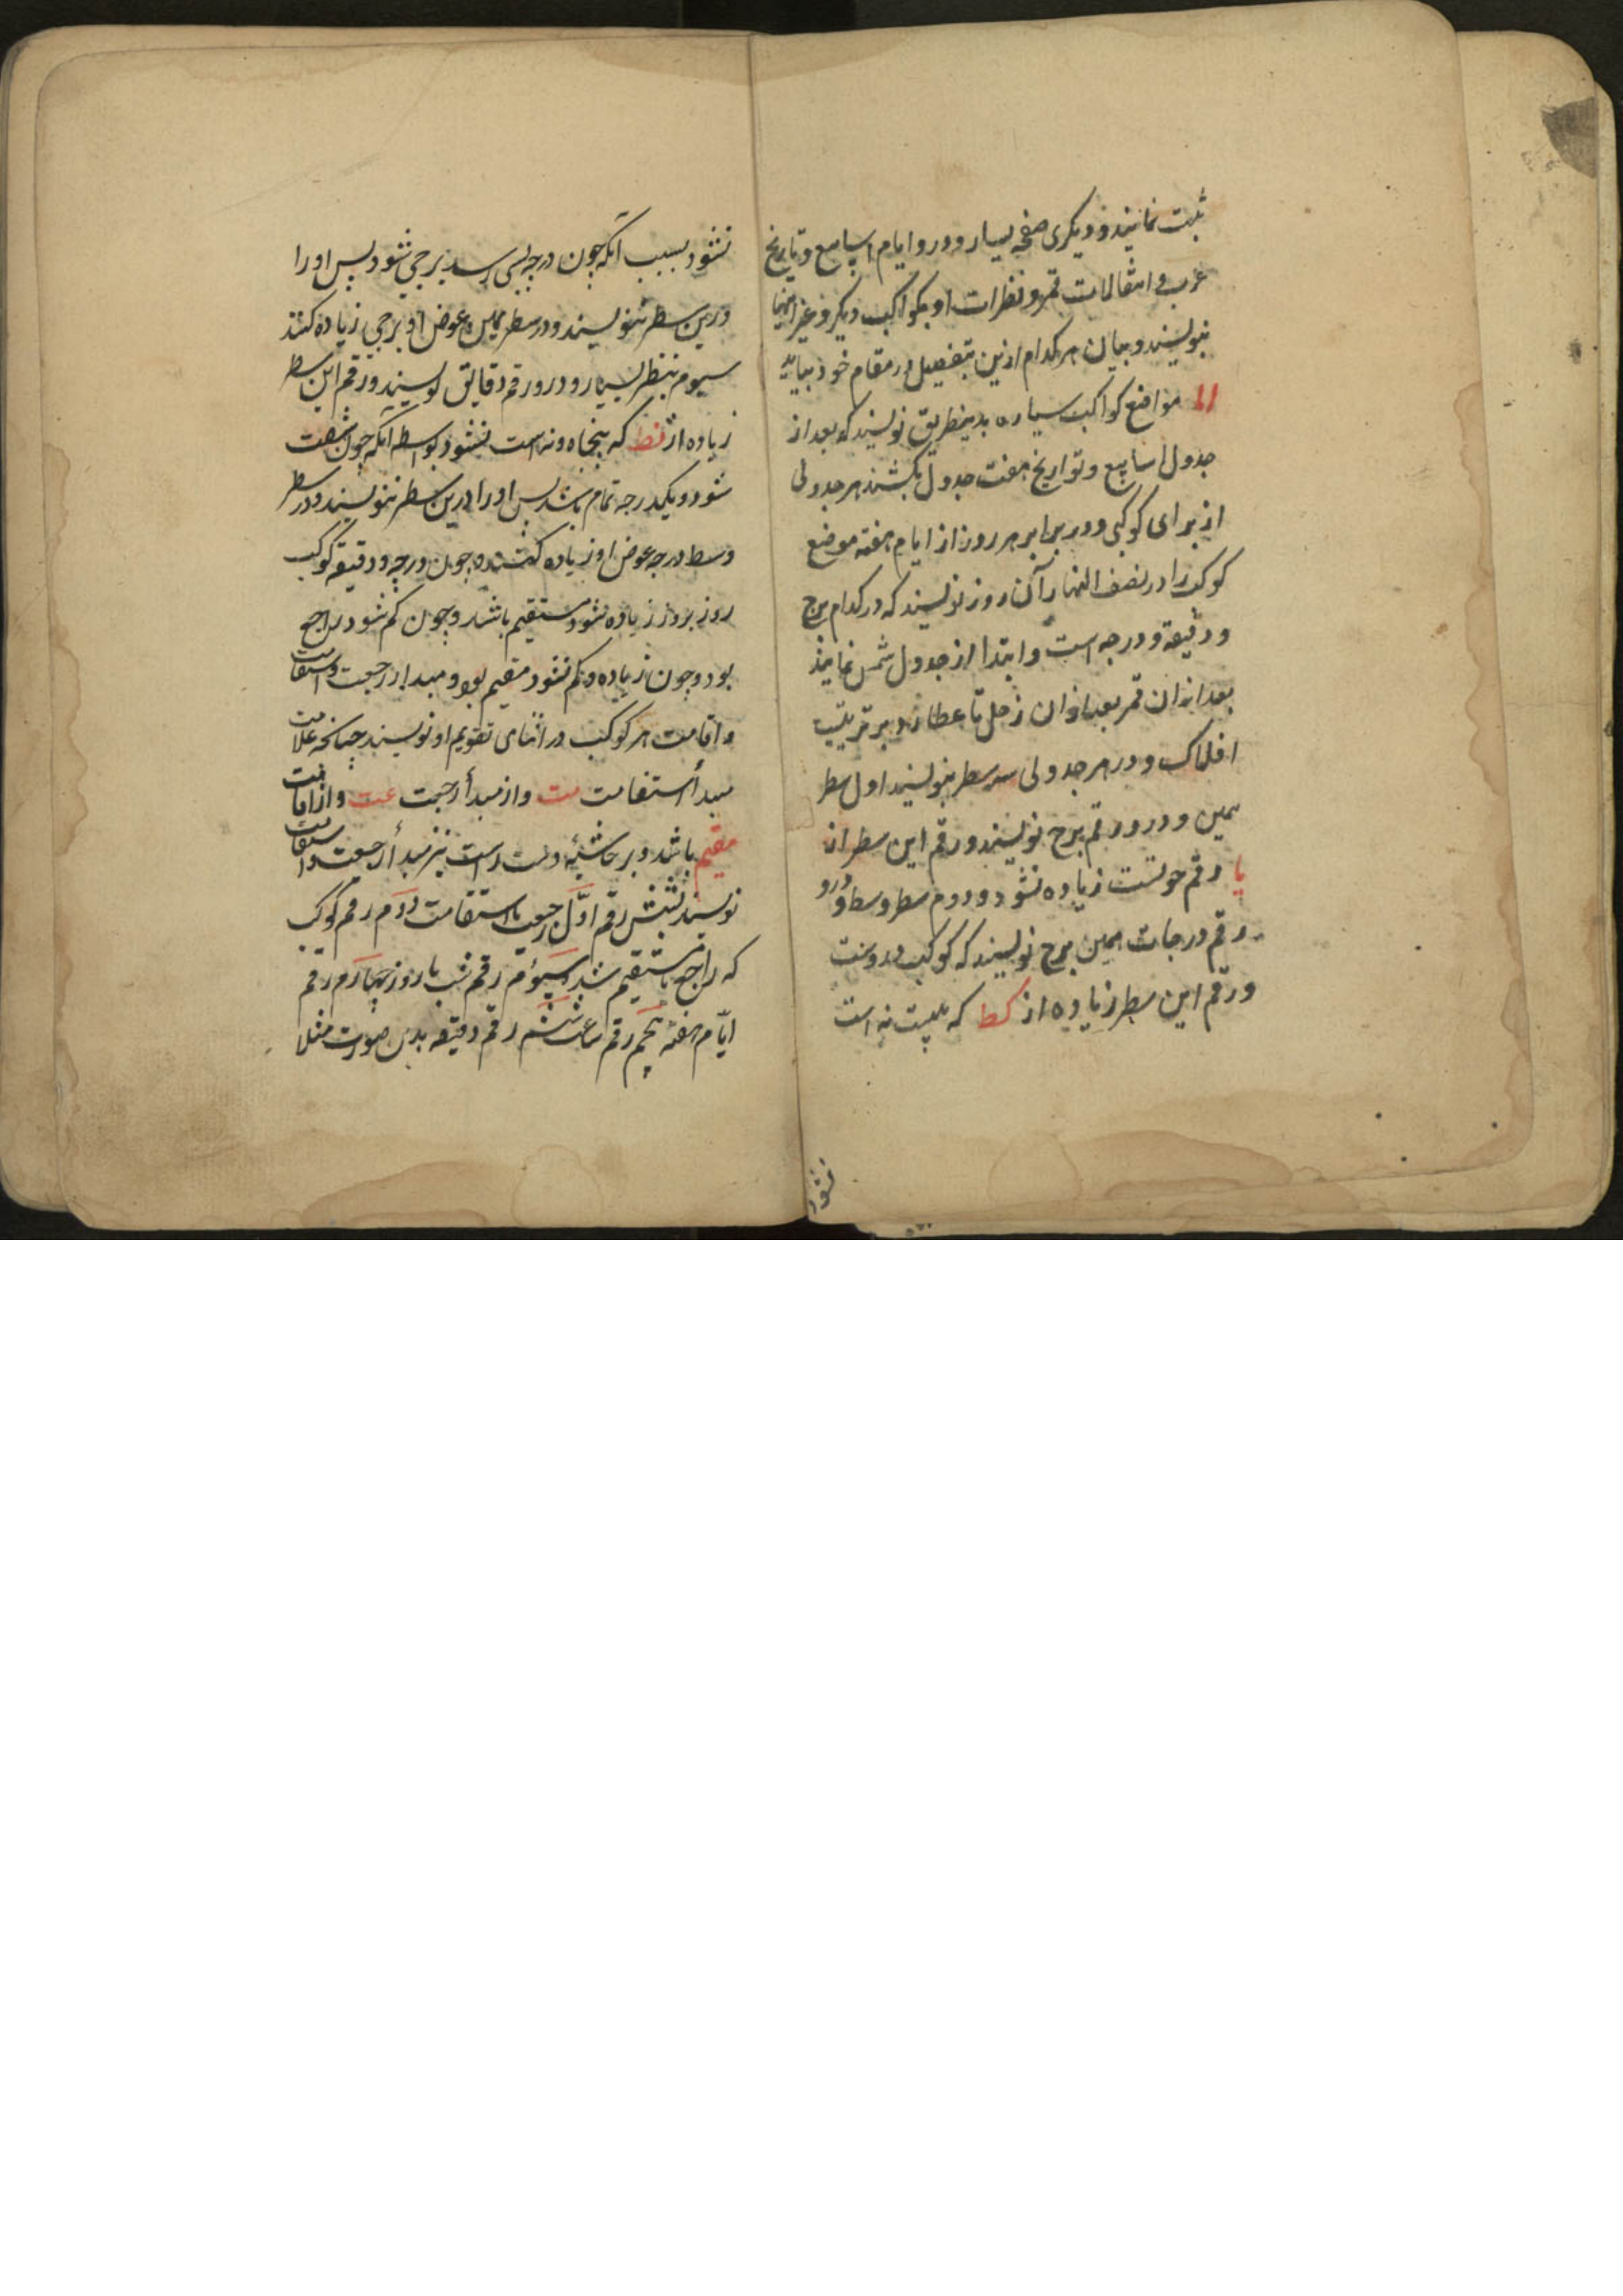 ثبت نمایند و دیگری صفحه یسار و درو ایام اسابیع و تاریخ
عرب و انتقالات قمر و نظرات او بکواکب دیگر و غیر اینها
بنویسند و بیان هر کدام ازین بتفصیل در مقام خود بیاید
اما مواضع کواکب سیاره بدینطریق نویسند که بعد از
جدول اسابیع و تواریخ هفت جدول بکشند هر جدولی
از برای کوکبی و در برابر هر روز از ایام هفته موضع
کوکب را در نصف النهار آن روز نویسند که در کدام برج
و دقیقه و درجه است و ابتدا از جدول شمس نمایند
بعد ازان قمر بعد ازان زحل تا عطارد بر ترتیب
افلاک و در هر جدولی سه سطر بنویسند اول سطر
یمین و درو رقم برج نویسند و رقم این سطر از
یا رقم حوتست زیاده نشود و دوم سطر وسط و درو
رقم درجات همین برج نویسند که کوکب دروست
و رقم این سطر زیاده از کط که بیست نه است
نشود
نشود بسبب آنکه چون درجه بسی رسد برجی شود پس او را
درین سطر ننویسند و در سطر یمین عوض او برجی زیاده کنند
سیوم سطر یسار و درو رقم دقایق نویسند و رقم این سطر
زیاده از نط که پنجاه و نه است نشود بواسطه آنکه چون شصت
شود و یکدرجه تمام باشد پس او را درین سطر ننویسند و در سطر
وسط درجه عوض او زیاده کنند و چون درجه و دقیقه کوکب
روز بروز زیاده شود مستقیم باشد و چون کم شود راجع
بود و چون زیاده و کم نشود مقیم بود و مبدا رجعت و استقامت
و اقامت هر کوکب در اثنای تقویم او نویسند چنانکه علامت
مبدأ استقامت مت و از مبدأ رجعت عت و از اقامت
مقیم باشد و بر حاشیه دست راست نیز مبدأ رجعت و استقامت
نویسند بشش رقم اوّل رجعت یا استقامت دوم رقم کوکب
که راجع یا مستقیم شد سیوم رقم شب یا روز چهارم رقم
ایّام هفته پنجم رقم ساعت ششم رقم دقیقه بدین صورت مثلا